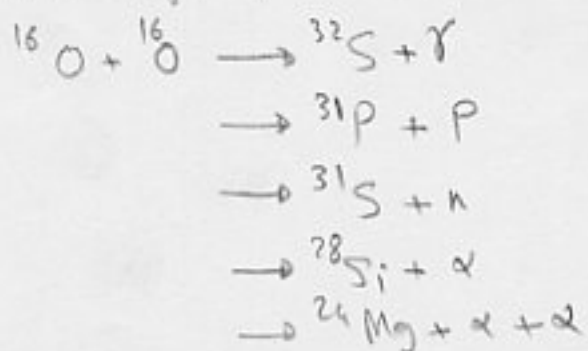 ¹⁶O + ¹⁶O ⟶ ³²S + γ
⟶ ³¹P + P
⟶ ³¹S + n
⟶ ²⁸Si + α
⟶ ²⁴Mg + α + α